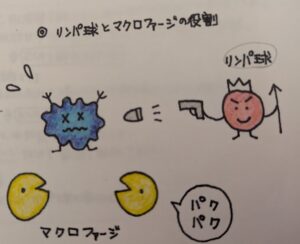 ◎ リンパ球とマクロファージの役割
リンパ球
マクロファージ
パク
パク